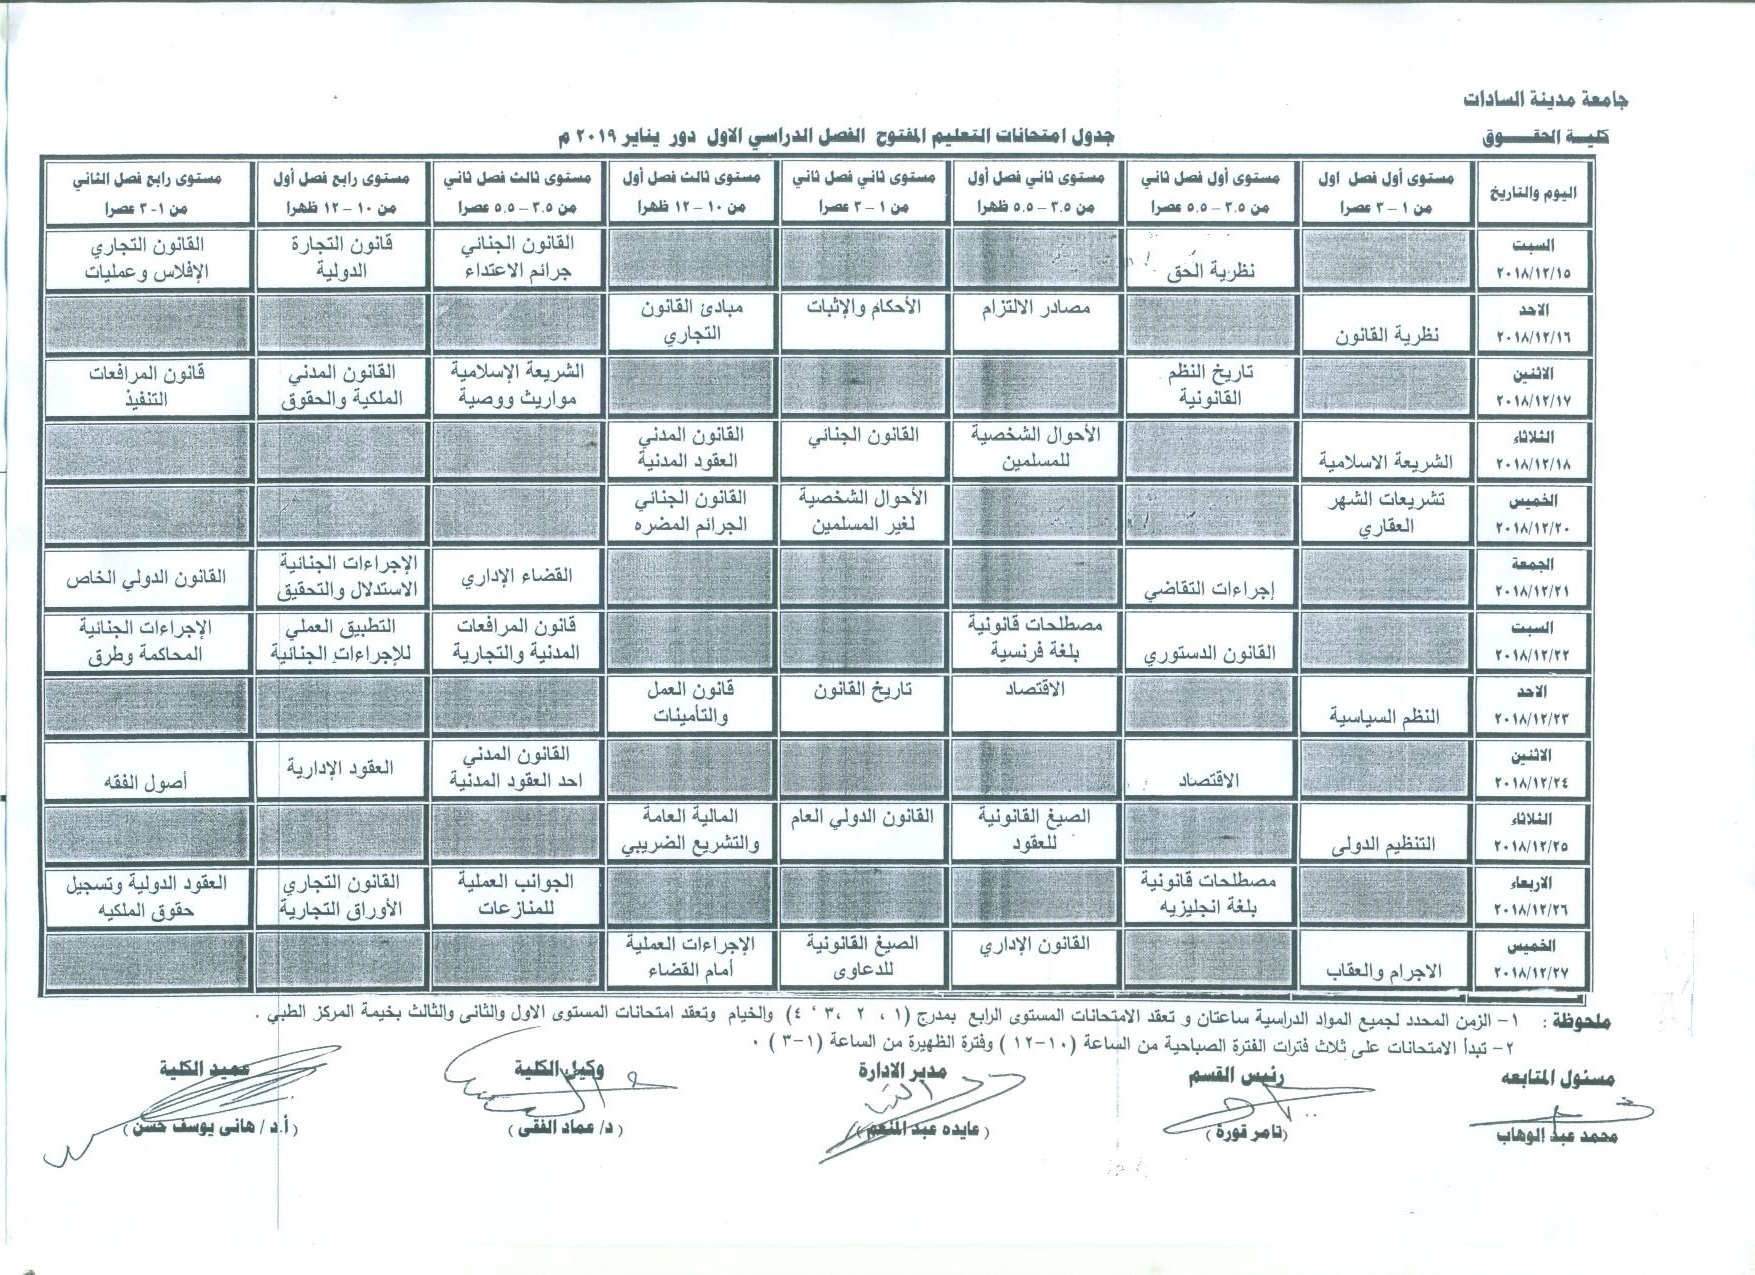 جامعة مدينة السادات
كلية الحقـــــوق
جدول امتحانات التعليم المفتوح الفصل الدراسي الاول دور يناير ٢٠١٩ م
اليوم والتاريخ
مستوى أول فصل اول
من ١ – ٣ عصرا
مستوى أول فصل ثاني
من ٣.٥ – ٥.٥ عصرا
مستوى ثاني فصل أول
من ٣.٥ – ٥.٥ ظهرا
مستوى ثاني فصل ثاني
من ١ – ٣ عصرا
مستوى ثالث فصل أول
من ١٠ – ١٢ ظهرا
مستوى ثالث فصل ثاني
من ٣.٥ – ٥.٥ عصرا
مستوى رابع فصل أول
من ١٠ – ١٢ ظهرا
مستوى رابع فصل الثاني
من ١- ٣ عصرا
السبت
٢٠١٨/١٢/١٥
نظرية الحق
القانون الجنائي
جرائم الاعتداء
قانون التجارة
الدولية
القانون التجاري
الإفلاس وعمليات
الاحد
٢٠١٨/١٢/١٦
نظرية القانون
مصادر الالتزام
الأحكام والإثبات
مبادئ القانون
التجاري
الاثنين
٢٠١٨/١٢/١٧
تاريخ النظم
القانونية
الشريعة الإسلامية
مواريث ووصية
القانون المدني
الملكية والحقوق
قانون المرافعات
التنفيذ
الثلاثاء
٢٠١٨/١٢/١٨
الشريعة الاسلامية
الأحوال الشخصية
للمسلمين
القانون الجنائي
القانون المدني
العقود المدنية
الخميس
٢٠١٨/١٢/٢٠
تشريعات الشهر
العقاري
الأحوال الشخصية
لغير المسلمين
القانون الجنائي
الجرائم المضره
الجمعة
٢٠١٨/١٢/٢١
إجراءات التقاضي
القضاء الإداري
الإجراءات الجنائية
الاستدلال والتحقيق
القانون الدولي الخاص
السبت
٢٠١٨/١٢/٢٢
القانون الدستوري
مصطلحات قانونية
بلغة فرنسية
قانون المرافعات
المدنية والتجارية
التطبيق العملي
للإجراءات الجنائية
الإجراءات الجنائية
المحاكمة وطرق
الاحد
٢٠١٨/١٢/٢٣
النظم السياسية
الاقتصاد
تاريخ القانون
قانون العمل
والتأمينات
الاثنين
٢٠١٨/١٢/٢٤
الاقتصاد
القانون المدني
احد العقود المدنية
العقود الإدارية
أصول الفقه
الثلاثاء
٢٠١٨/١٢/٢٥
التنظيم الدولى
الصيغ القانونية
للعقود
القانون الدولي العام
المالية العامة
والتشريع الضريبي
الاربعاء
٢٠١٨/١٢/٢٦
مصطلحات قانونية
بلغة انجليزيه
الجوانب العملية
للمنازعات
القانون التجاري
الأوراق التجارية
العقود الدولية وتسجيل
حقوق الملكيه
الخميس
٢٠١٨/١٢/٢٧
الاجرام والعقاب
القانون الإداري
الصيغ القانونية
للدعاوى
الإجراءات العملية
أمام القضاء
ملحوظة : ١- الزمن المحدد لجميع المواد الدراسية ساعتان و تعقد الامتحانات المستوى الرابع بمدرج (١ ، ٢ ،٣ ، ٤) والخيام وتعقد امتحانات المستوى الاول والثانى والثالث بخيمة المركز الطبي .
٢- تبدأ الامتحانات على ثلاث فترات الفترة الصباحية من الساعة (١٠-١٢ ) وفترة الظهيرة من الساعة (١-٣ ) .
مسئول المتابعه
رئيس القسم
مدير الادارة
وكيل الكلية
عميد الكلية
محمد عبد الوهاب
(تامر قورة )
( عايده عبد المنعم )
( د/ عماد الفقى )
( أ.د / هانى يوسف حسن )